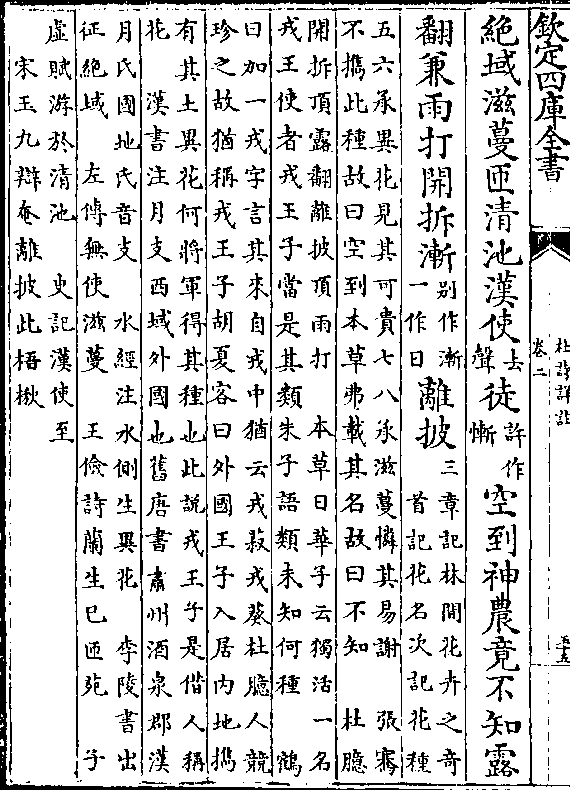 欽定四庫全書
杜詩詳註
卷二
五十五
絶域滋蔓匝清池漢使去聲徒許作慚空到神農竟不知露
翻兼雨打開拆漸别作漸一作日離披三章記林間花卉之奇首記花名次記花種
五六承異花見其可貴七八承滋蔓憐其易謝　張騫
不擕此種故曰空到本草弗載其名故曰不知　杜臆
開拆頂露翻離披頂雨打　本草日華子云獨活一名
戎王使者戎王子當是其類朱子語類未知何種　鶴
曰加一戎字言其來自戎中猶云戎菽戎葵杜臆人競
珍之故猶稱戎王子胡夏客曰外國王子入居内地擕
有其土異花何將軍得其種也此説戎王子是借人稱
花　漢書注月支西域外國也舊唐書肅州酒泉郡漢
月氏國地氏音支　水經注水側生異花　李陵書出
征絶域　左傳無使滋蔓　王儉詩蘭生已匝苑　子
虚賦游於清池　史記漢使至
宋玉九辯奄離披此梧楸